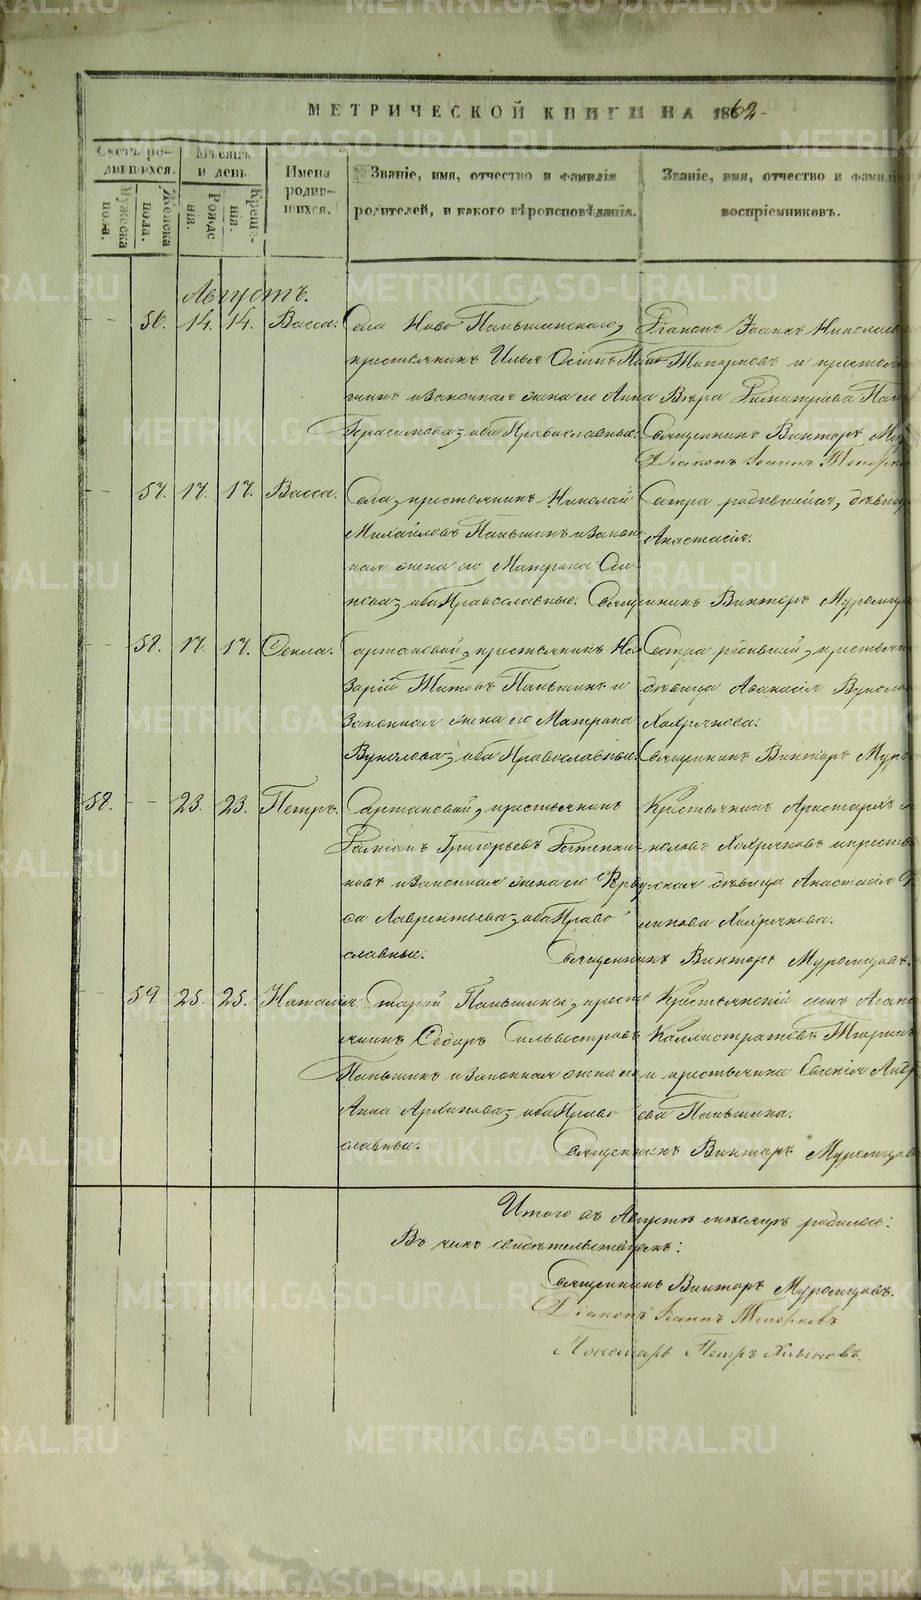 МЕТРИЧЕСКОЙ КНИГИ НА 1862
Счетъ родившихся.
Мужеска пола.
Женска пола.
Мѣсяцъ и день.
Рожденія.
Крещенія.
Имена родившихся.
Званіе, имя, отчество и фамилія
родителей, и какого вѣроисповѣданія.
Званіе, имя, отчество и фамилі
воспріемниковъ.
Августъ.
56. 14. 14. Васса.
Села Ново Паньшинскаго,
крестьянинъ Илья Осіповъ Пань
шинъ и законная жена его Анна
Герасимова, оба Православные.
Діаконъ Іоаннъ Николаев
Топорковъ и крестьян
Вѣра Димитріева Пань
Священникъ Викторъ Му
Діаконъ Іоаннъ Топорко
57. 17. 17. Васса.
Села, крестьянинъ Николай
Михайловъ Паньшинъ и закон
ная жена его Матрона Оси
пова, оба Православные.
Сестра родившейся, дѣвица
Анастасія.
Священникъ Викторъ Муромцов
58. 17. 17. Ѳекла.
крестьянинъ На
зарій Титовъ Паньшинъ и
законная жена его Матрона
Вуколова, оба Православные.
Сестра родившей, крестьян
дѣвица Аѳанасія Вуколо
Хомячкова.
Священникъ Викторъ Муро
58. 23. 23. Петръ.
крестьянинъ
Григорьевъ
новъ и законная жена его
са Лаврентьева, оба Право
славные.
Крестьянинъ Аристархъ
коловъ Хомячковъ и кресть
янская дѣвица Анастасія
Хомячкова.
Священникъ Викторъ Муромцовъ.
59. 25. 25. Наталія.
Старой Паньшины, кресть
янинъ Сильвестровъ
Паньшинъ и законная жена его
Анна Архипова, оба Право
славные.
Крестьянскій сынъ Агап
Каллистратовъ
и крестьянка Евгенія Андр
ева Паньшина.
Священникъ Викторъ Муромцовъ
Итого въ Августѣ мѣсяцѣ родилось:
Въ чемъ свидѣтельствуемъ:
Священникъ Викторъ Муромцовъ.
Діаконъ Іоаннъ Топорковъ
Пономарь Петръ
METRIKI.GASO-URAL.RU